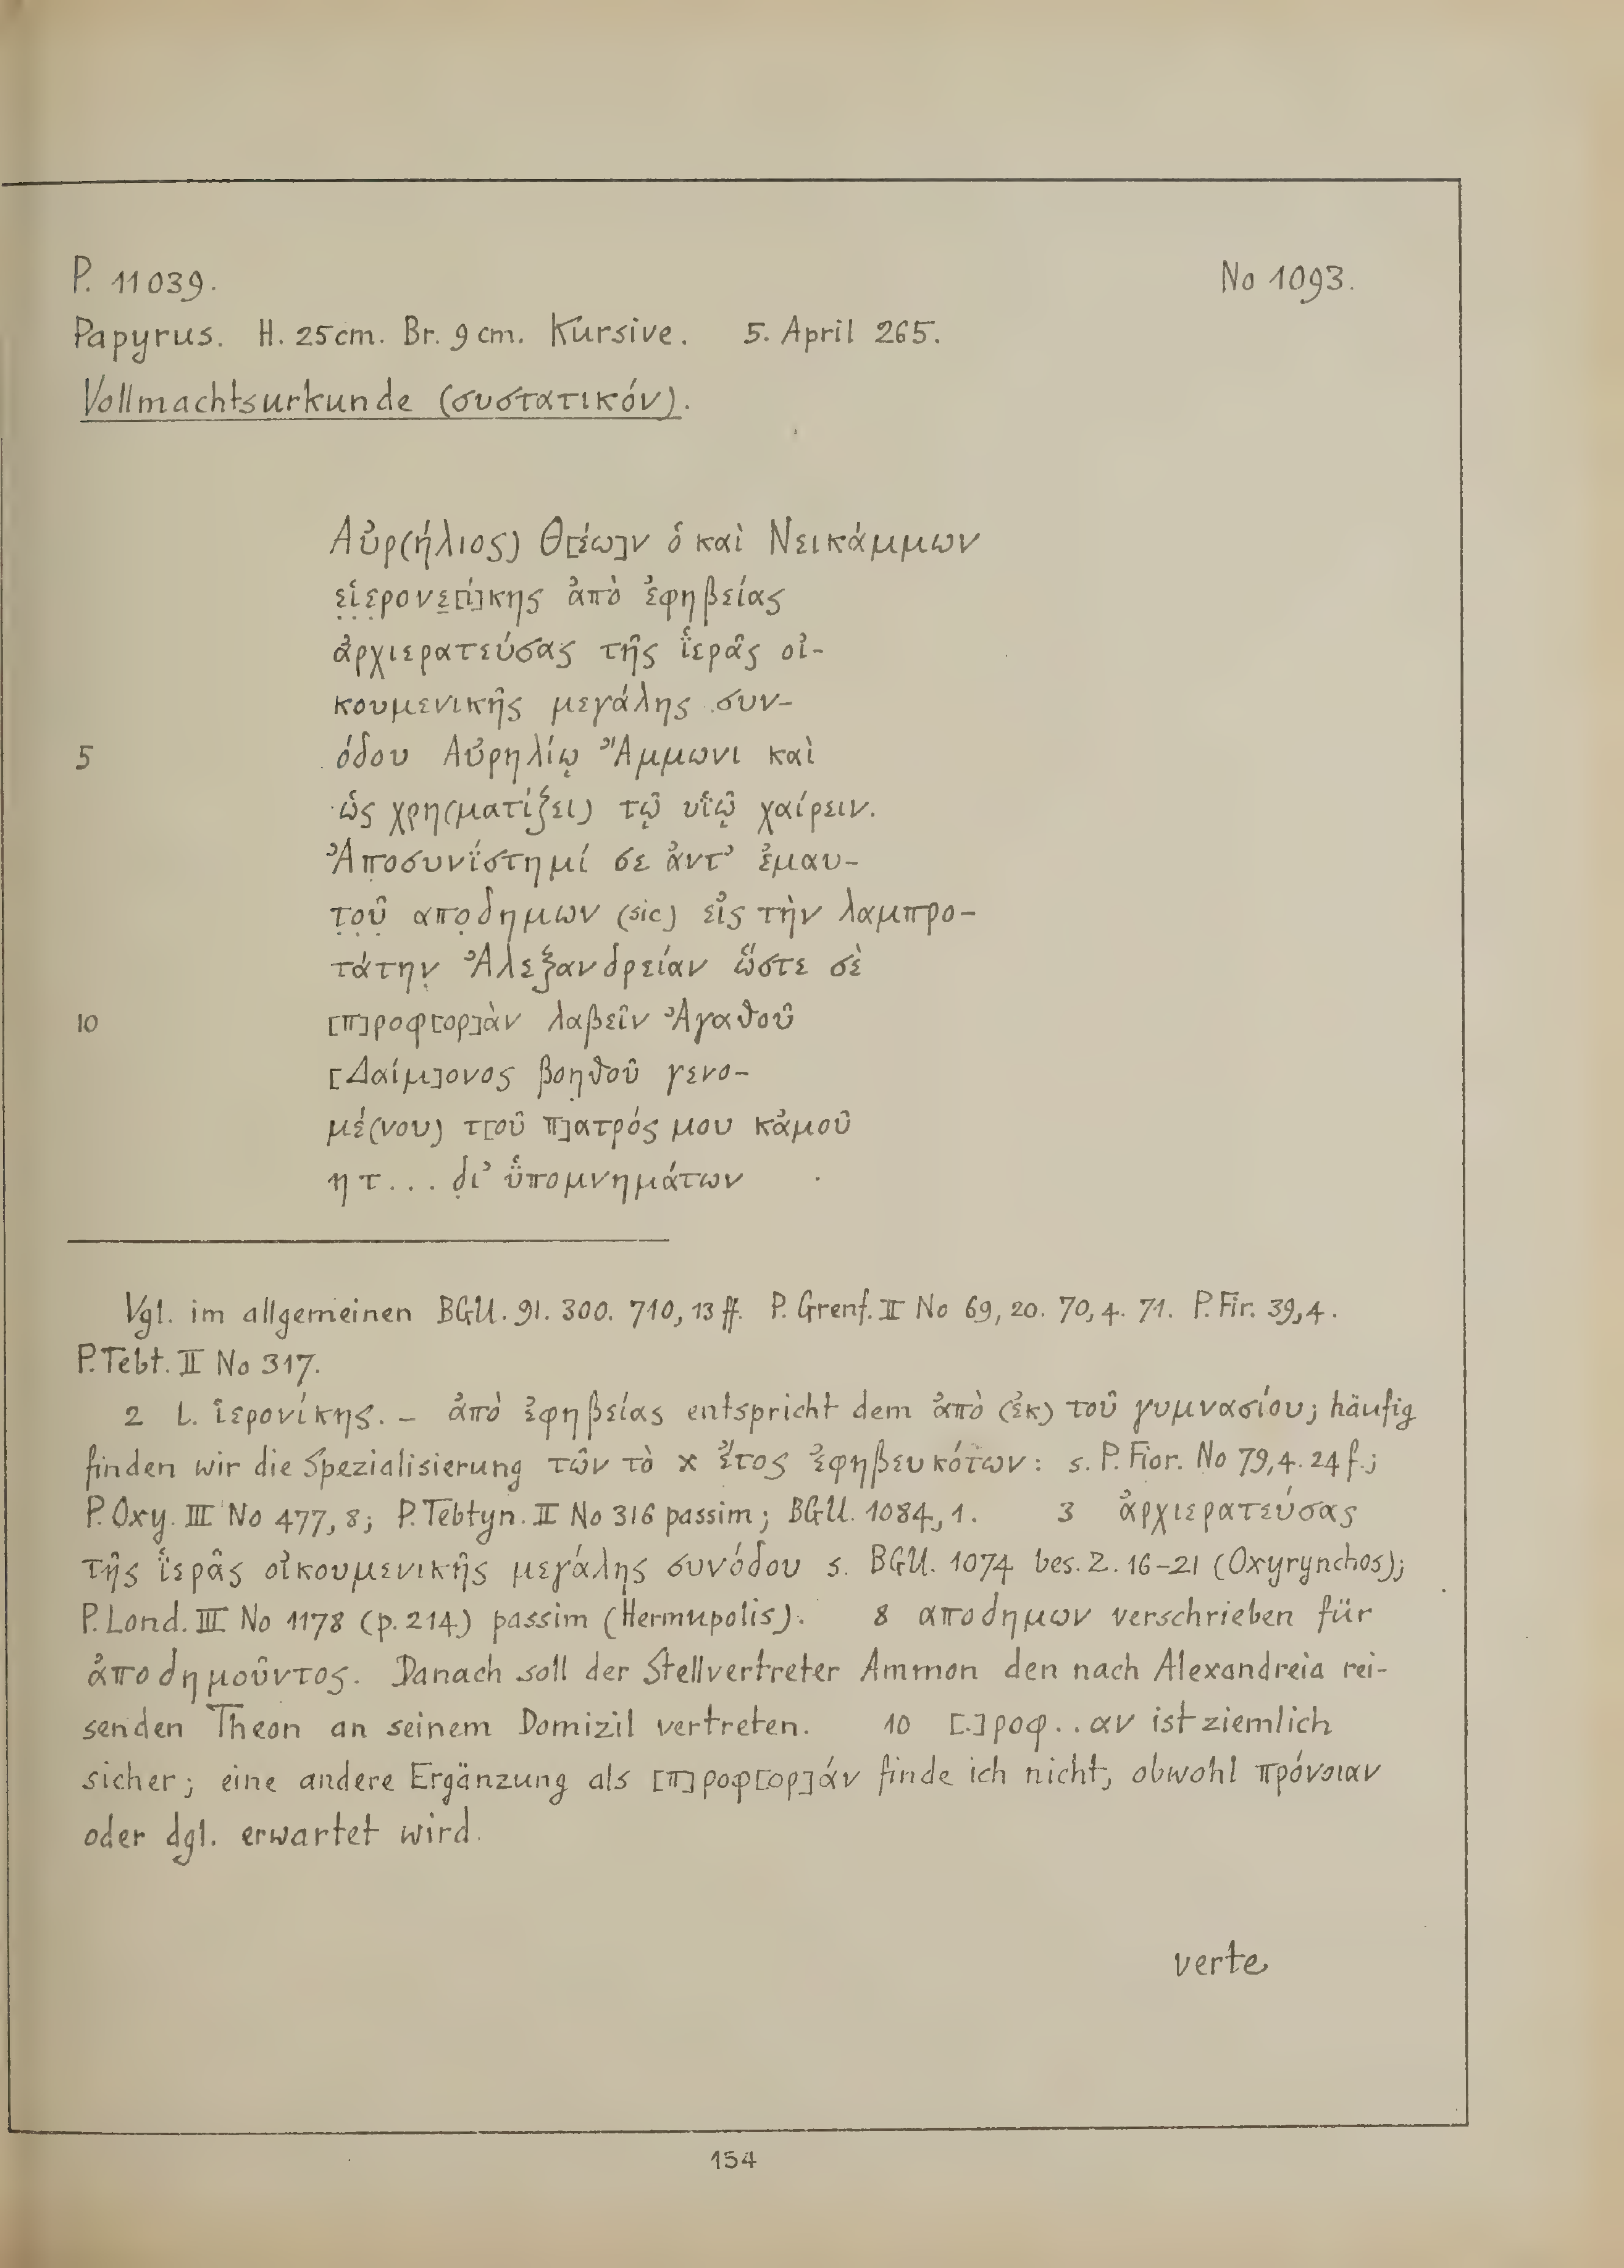 P. 11039. No 1093.
Papyrus. H. 25 cm. Br. 9 cm. Kursive. 5. April 265.
Vollmachtsurkunde (συστατικόν).
Αὐρ(ήλιος) Θ[έω]ν ὁ καὶ Νεικάμμων
ε̣ἱ̣ε̣ρονε̣[ί]κης ἀπὸ ἐφηβείας
ἀρχιερατεύσας τῆς ϊἑρᾶς οἰ-
κουμενικῆς μεγάλης συν-
5 όδου Αὐρηλίῳ Ἄμμωνι καὶ
ὡς χρη(ματίζει) τῷ υἱῷ χαίρειν.
Ἀπ̣οσυνΐστημί σε ἀντ’ ἐμαυ-
τ̣ο̣ῦ̣ απο̣δημων (sic) εἰς τὴν λαμπρο-
τάτην̣ Ἀλεξανδρείαν ὥστε σὲ
10 [π]ροφ[ορ]ὰν λαβεῖν Ἀγαθοῦ
[Δαίμ]ονος βοη̣θοῦ γενο-
μέ(νου) τ[οῦ π]ατρός μου κἀμοῦ
ητ... δ̣ι’ ὑπομνημάτων
Vgl. im allgemeinen BGU. 91. 300. 710, 13 ff. P. Grenf. II No 69, 20. 70, 4. 71. P. Fir. 39, 4.
P. Tebt. II No 317.
2 L. ἱερονίκης. – ἀπὸ ἐφηβείας entspricht dem ἀπὸ (ἐκ) τοῦ γυμνασίου; häufig
finden wir die Spezialisierung τῶν τὸ x ἔτος ἐφηβευκότων: s. P. Fior. No 79, 4. 24 f.;
P. Oxy. III No 477, 8; P. Tebtyn. II No 316 passim; BGU. 1084, 1. 3 ἀρχιερατεύσας
τῆς ἱερᾶς οἰκουμενικῆς μεγάλης συνόδου s. BGU. 1074 bes. Z. 16–21 (Oxyrynchos);
P. Lond. III No 1178 (p. 214) passim (Hermupolis). 8 αποδημων verschrieben für
ἀποδημοῦντος. Danach soll der Stellvertreter Ammon den nach Alexandreia rei-
senden Theon an seinem Domizil vertreten. 10 [.]ροφ..αν ist ziemlich
sicher; eine andere Ergänzung als [π]ροφ[ορ]άν finde ich nicht, obwohl πρόνοιαν
oder dgl. erwartet wird.
verte
154